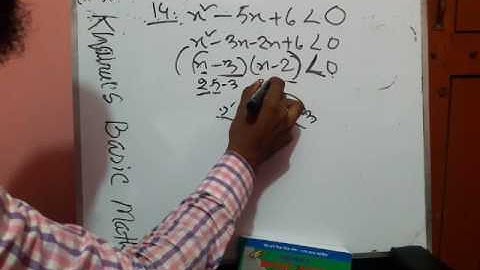 14. x² - 5x + 6 < 0
x² - 3x - 2x + 6 < 0
(x - 3) (x - 2) < 0
2.5 - 3
2
3
Khairul's Basic Math